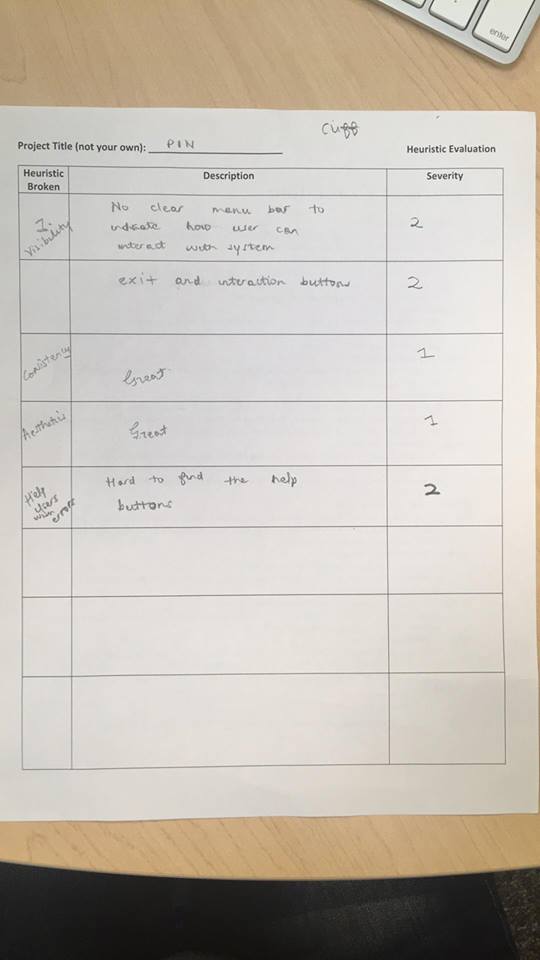 enter
Cuff
Project Title (not your own): PIN
Heuristic Evaluation
Heuristic Broken
Description
Severity
1. Visibility
No clear menu bar to
indicate how user can
interact with system
2
exit and interaction buttons
2
Consistency
Great
1
Aesthetic
Great
1
Help
Users
when
errors
Hard to find the help
buttons
2